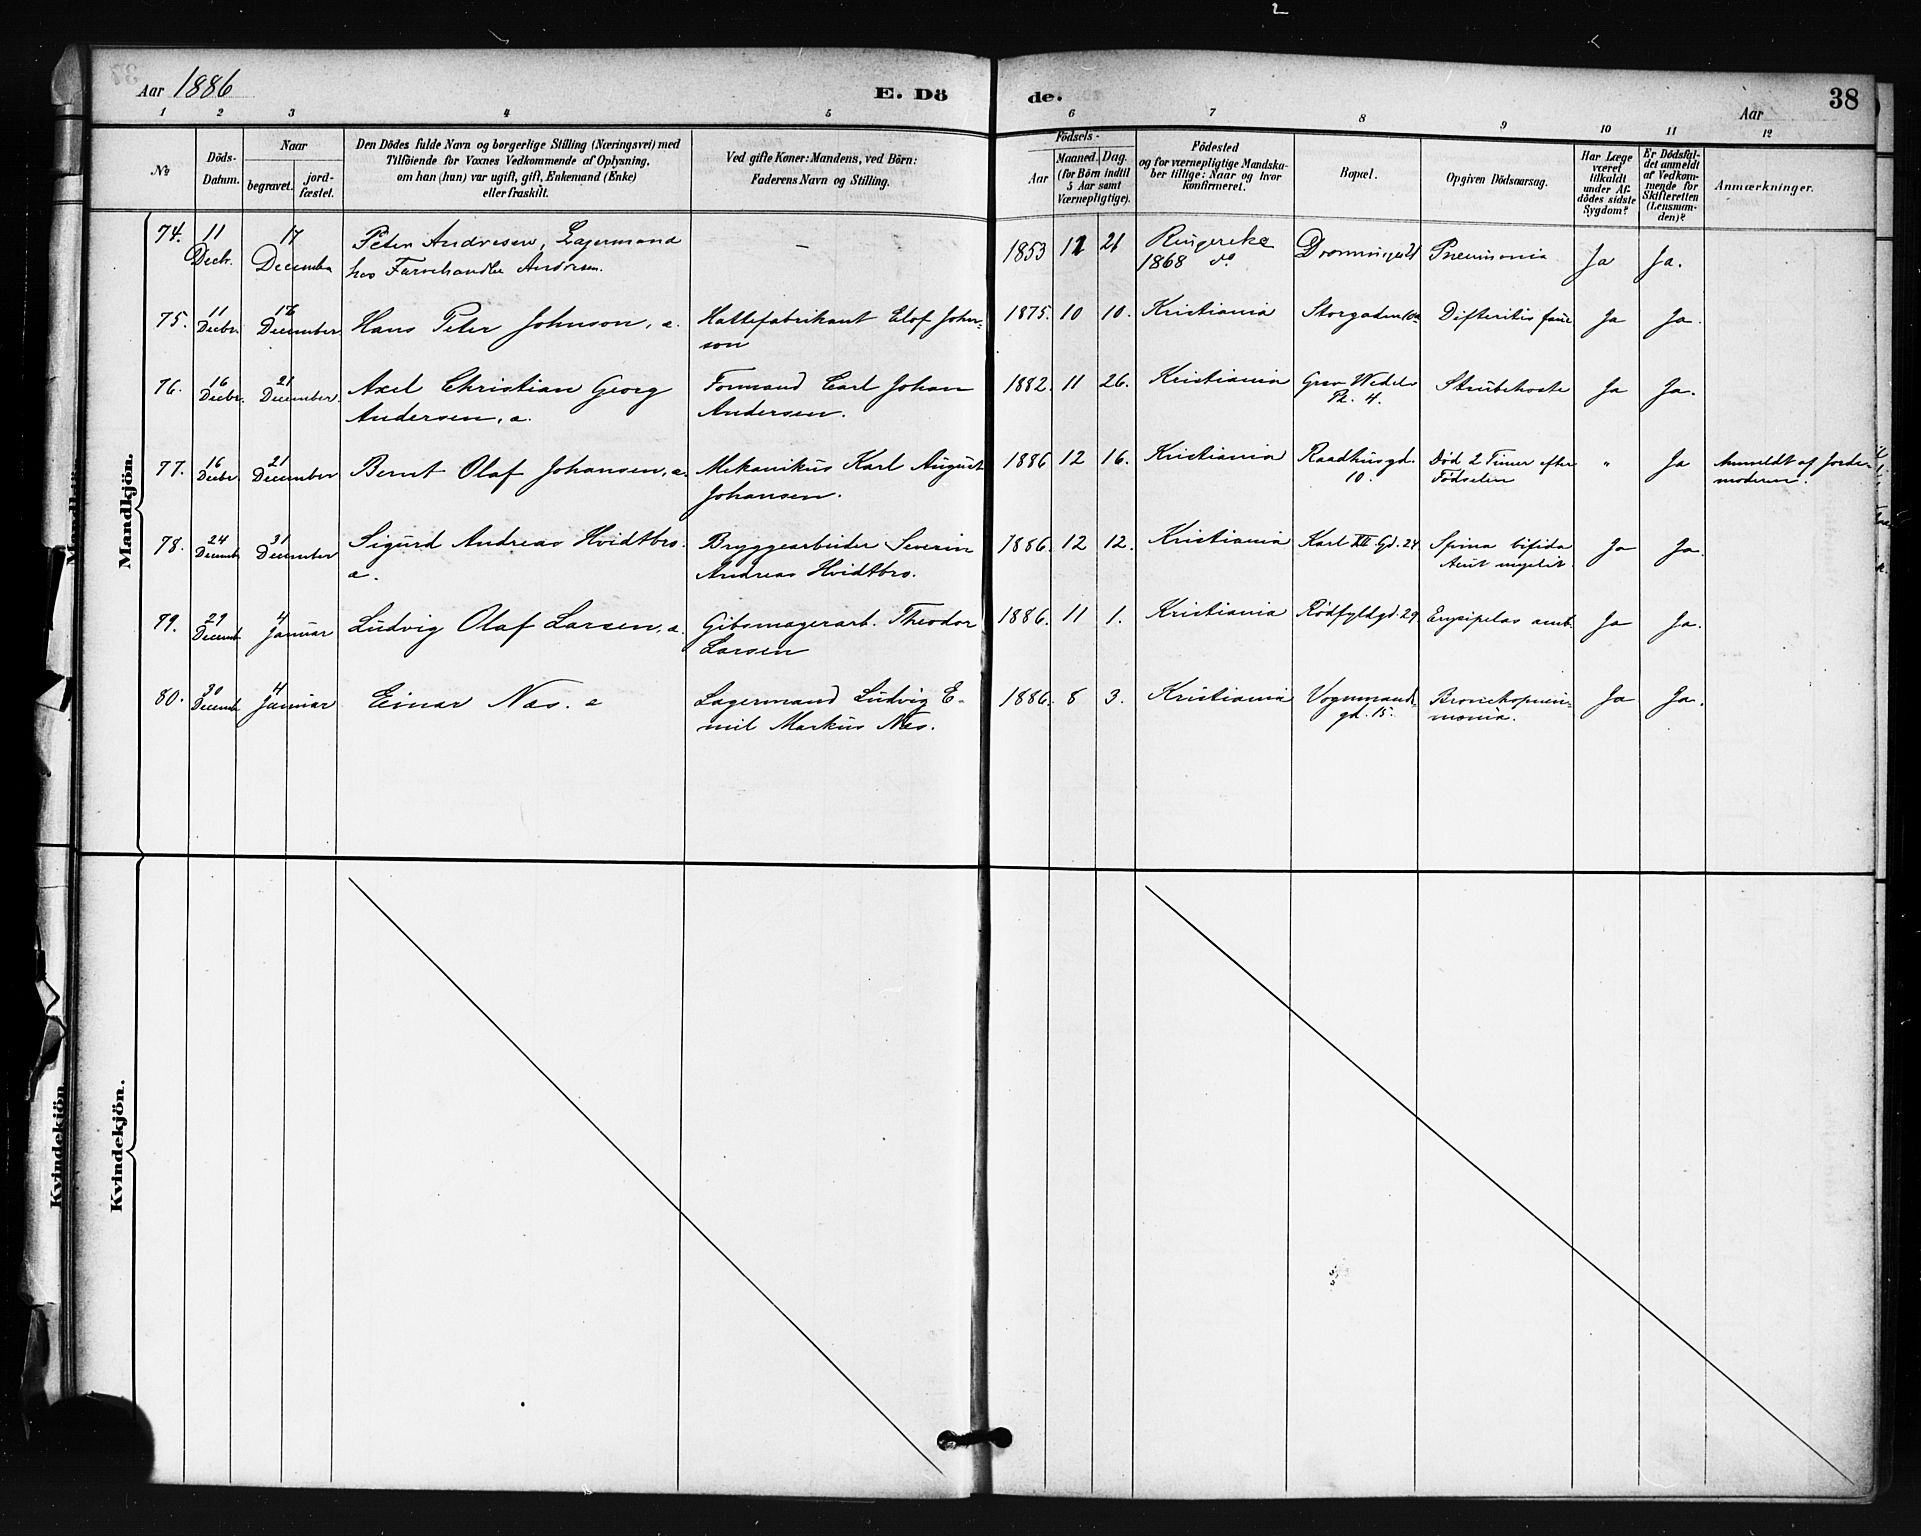 Aar 1886
E. Dö
de.
Aar
38
1 2 3 4 5 6 7 8 9 10 11 12
No
Döds-
Datum.
Naar
begravet.
jord-
fæstet.
Den Dödes fulde Navn og borgerlige Stilling (Næringsvei) med
Tilföiende for Voxnes Vedkommende af Oplysning,
om han (hun) var ugift, gift, Enkemand (Enke)
eller fraskilt.
Ved gifte Koner: Mandens, ved Börn:
Faderens Navn og Stilling.
Födsels-
Aar
Maaned.
Dag.
(for Börn indtil
5 Aar samt
Værnepligtige).
Födested
og for værnepligtige Mandska-
ber tillige: Naar og hvor
konfirmeret.
Bopæl.
Opgiven Dödsaarsag.
Har Læge
været
tilkaldt
under Af-
dödes sidste
Sygdom?
Er Dödsfal-
det anmeldt
af Vedkom-
mende for
Skifteretten
(Lensman-
den)?
Anmærkninger.
Mandkjön.
74. 11 17 Peter Andresen, Lagermand — 1853 12 21 Ringerike Pneumonia Ja Ja.
Decbr. December hos Farvehandler Andersen. 1868 do
75. 11 December Hans Peter Johnson, a. Hattefabrikant Elof John-
Decbr. son 1875. 10 10. Kristiania Difteritis fauc Ja Ja.
76. 16 21 Axel Christian Georg Formand Carl Johan 1882. 11 26. Kristiania Grev Wedels Strubehoste Ja Ja.
Decbr. December. Andersen, a. Andersen. Pl. 4.
77. 16 21 Bernt Olaf Johansen, a. Mekanikus Karl August 1886 12 16. Kristiania Raadhusgd. Död 2 Timer efter " Ja Anmeldt af Jorde-
Decbr. December Johansen. 10. Födselen moderen.
78. 24 31 Sigurd Andreas Hvidtbro. Bryggearbeider Severin 1886. 12 12. Kristiania Karl XII Gd. 24. Spina bifida Ja Ja.
Decemb. December a. Andreas Hvidtbro. Acut myelit.
79. 29 4 Ludvig Olaf Larsen, a. Gibsmagerarb. Theodor 1886. 11 1. Kristiania Rödfyldgd. 29 Erysipelas amb. Ja Ja.
Decemb. Januar Larsen
80. 30 4 Einar Næs. a Lagermand Ludvig E- 1886. 8 3. Kristiania Vognmands- Bronchopneu- Ja Ja.
Decemb. Januar mil Markus Næs. gd. 15. monia.
Kvindekjön.